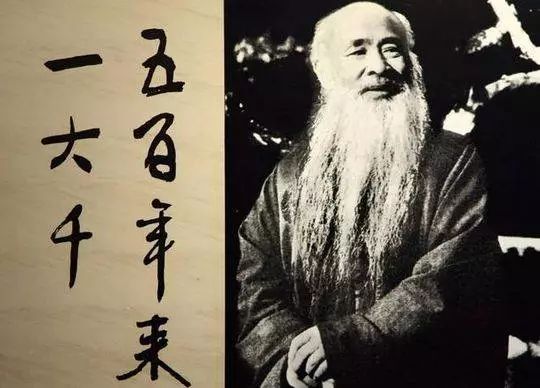 五百年来
一大千